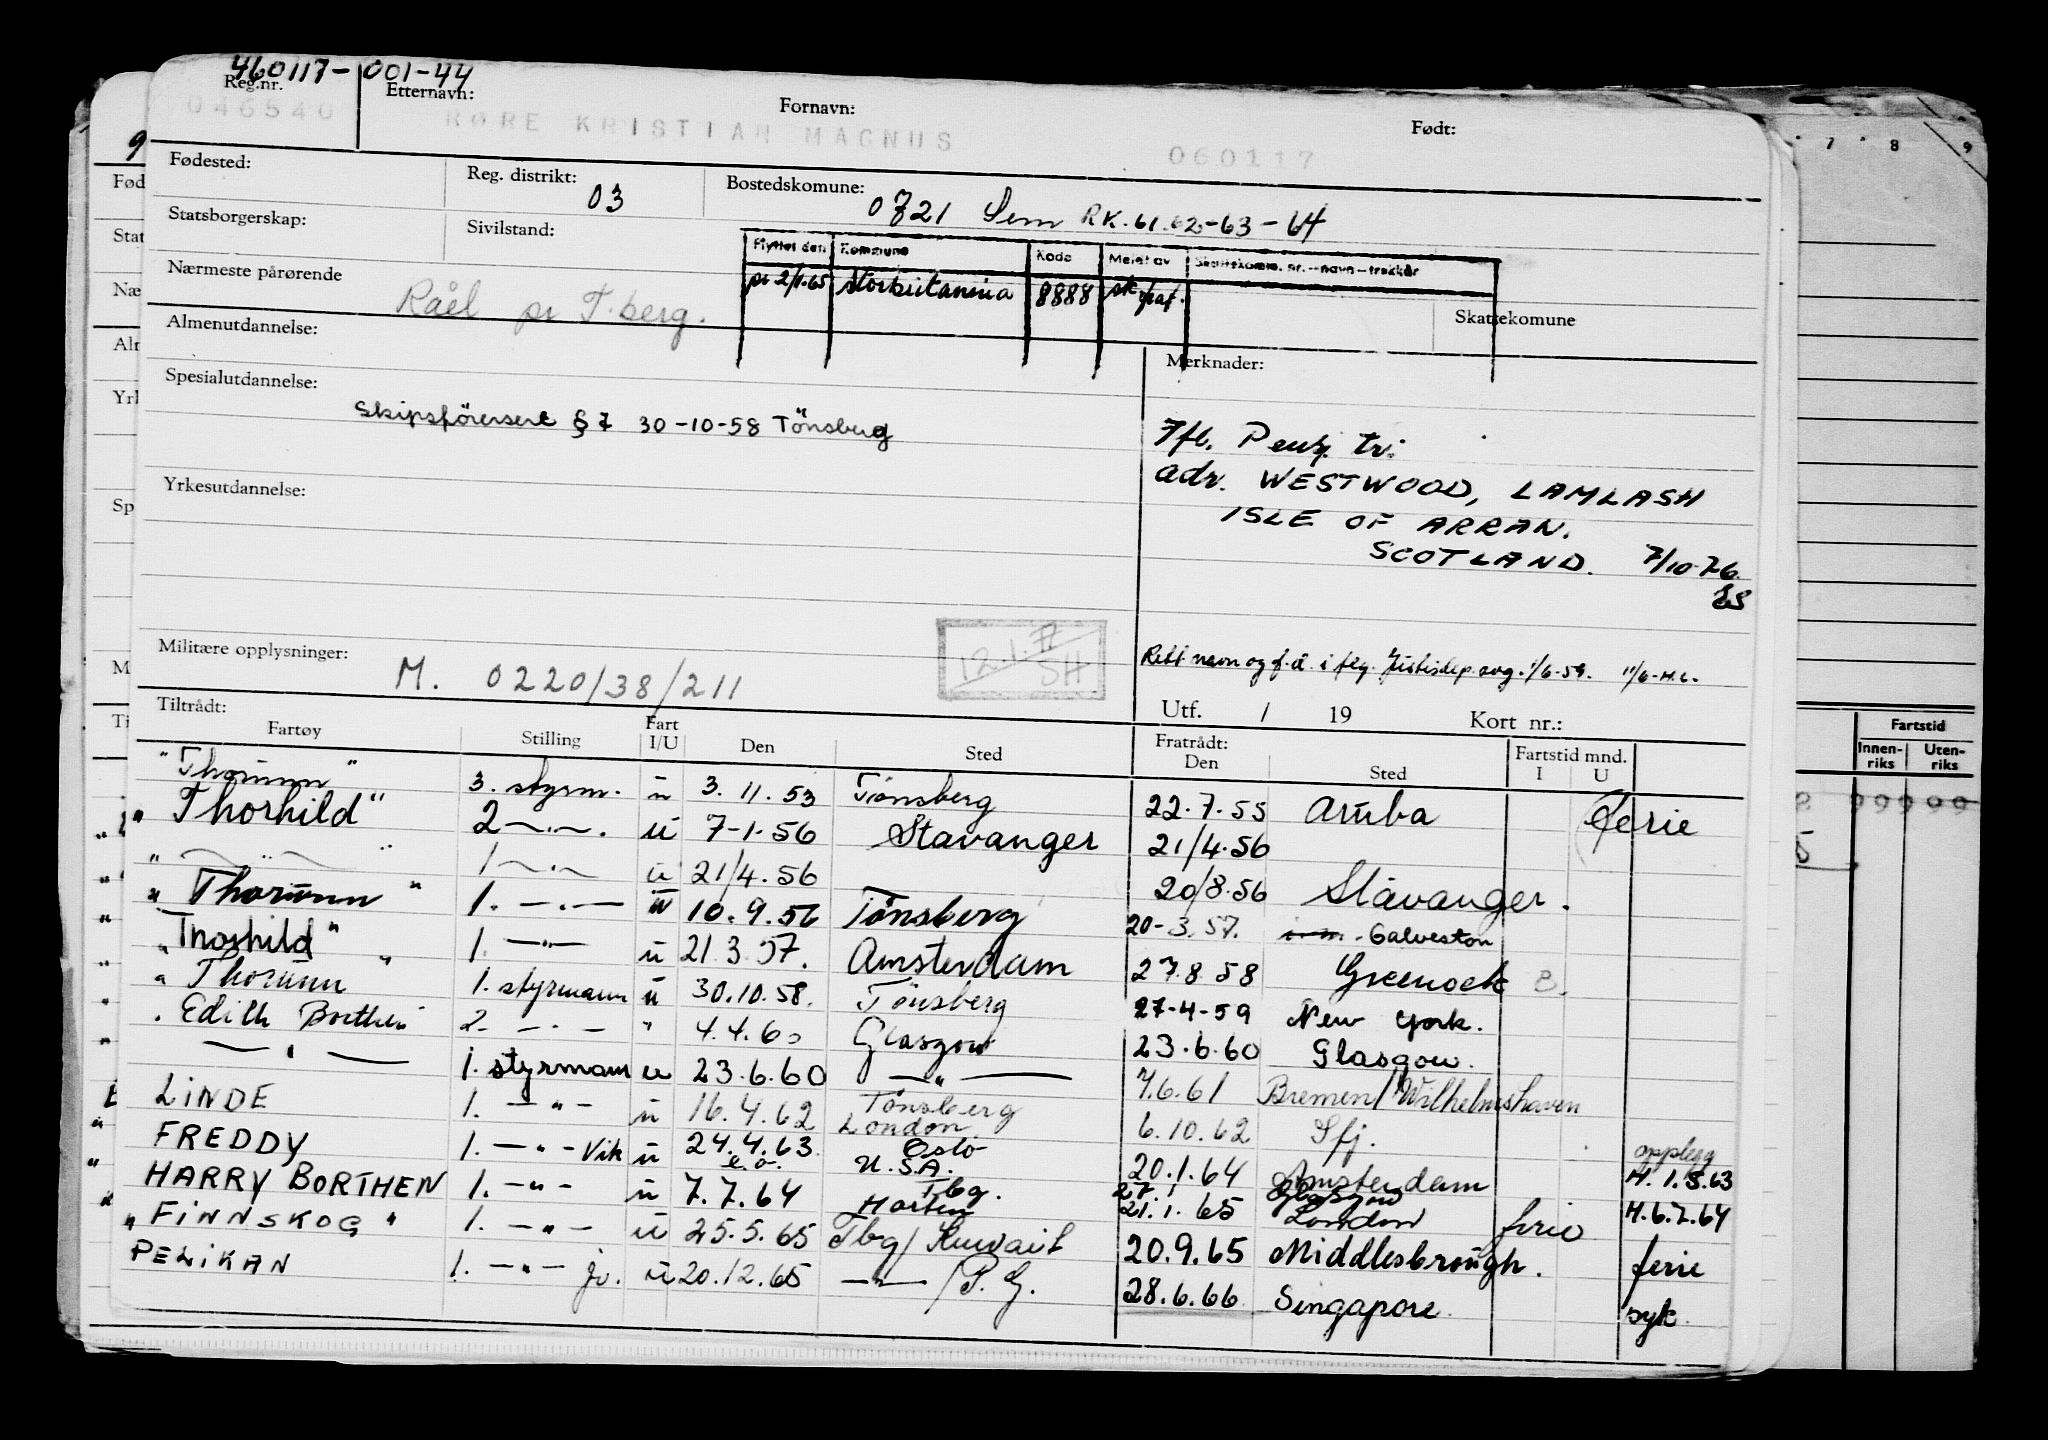 460117- 001-44
Reg.nr. Etternavn: Fornavn: Født:
046540 RØRE KRISTIAN MAGNUS 060117
Fødested: Reg. distrikt: 03 Bostedskomune: 0721 Sem RK.61.62-63-64
Statsborgerskap: Sivilstand:
Flyttet den Kommune Kode Meldt av Skattekomm. nr.—navn—trekkår
Nærmeste pårørende Råel pr T.berg. pr 2/1-65 Storbritannia 8888 sk
Skattekomune
Almenutdannelse:
Merknader:
Spesialutdannelse:
Skipsförersert § 7 30-10-58 Tönsberg
7fb. Pensj. tr.
adr. WESTWOOD, LAMLASH
ISLE OF ARRAN.
SCOTLAND. 7/10-76.
ES
Yrkesutdannelse:
12.1.
SH
Militære opplysninger: M. 0220/38/211
Rett navn og f.d. i flg. Justisdep. avg. 1/6-59. 11/6-H.L.
Tiltrådt: Utf. / 19 Kort nr.:
Fartøy Stilling Fart I/U Den Sted Fratrådt: Den Sted Fartstid mnd. I U
"Thorunn" 3. styrm. u 3.11.53 Tönsberg 22.7.55 Aruba ferie
"Thorhild" 2 —"—. u 7-1-56 Stavanger 21/4.56
" —"— " 1 —"— u 21/4.56 20/8.56 Stavanger.
"Thorunn" 1. —"— u 10.9.56 Tönsberg 20-3.57. Galveston
"Thorhild" 1. —"— u 21.3.57. Amsterdam 27.8.58 Greenock B.
"Thorunn" 1. styrmann u 30.10.58. Tönsberg 27-4-59 New York.
Edith Borthen 2. —"— " 4.4.60 Glasgow 23.6.60 Glasgow.
—"— 1. styrmann u 23.6.60 —"— 7.6.61 Bremen/Wilhelmshaven
LINDE 1. —"— u 16.4.62 Tönsberg London 6.10.62 Sfj. opplegg
FREDDY 1. —"— Vik u 24.4.63 Oslo U.S.A. 20.1.64 Amsterdam H.1.5.63
HARRY BORTHEN 1. —"— u 7.7.64 Tbg. Horten 27.1 21.1.65 Glasgow London ferie H.6.7.64
"FINNSKOG" 1. —"— u 25.5.65 Tbg/Kuwait 20.9.65 Middlesbrough. ferie
PELIKAN 1. —"— jv. u 20.12.65 —"—/P.G. 28.6.66 Singapore syk
7 8 9
Fartstid
Innen-riks Uten-riks